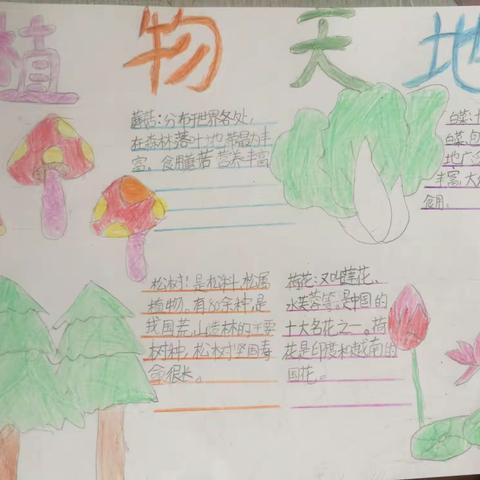 植物天地
蘑菇:分布于世界各处,
在森林落叶地带最为丰
富。食用蘑菇营养丰富
白菜:
白菜,
地广
丰富,大
食用。
松树:是松科、松属
植物。有80余种,是
我国荒山造林的主要
树种,松树坚固寿
命很长。
荷花:又叫莲花、
水芙蓉等。是中国的
十大名花之一。荷
花是印度和越南的
国花。